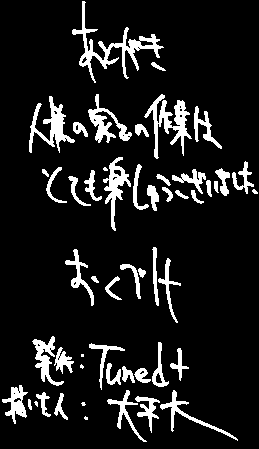 あとがき
人様の家での作業は
とても楽しゅうございました
おくづけ
発行：Tuned+
描いた人：大平木